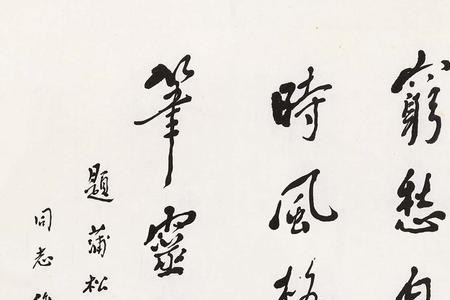 窮愁自
時風格
筆靈
題蒲松
同志